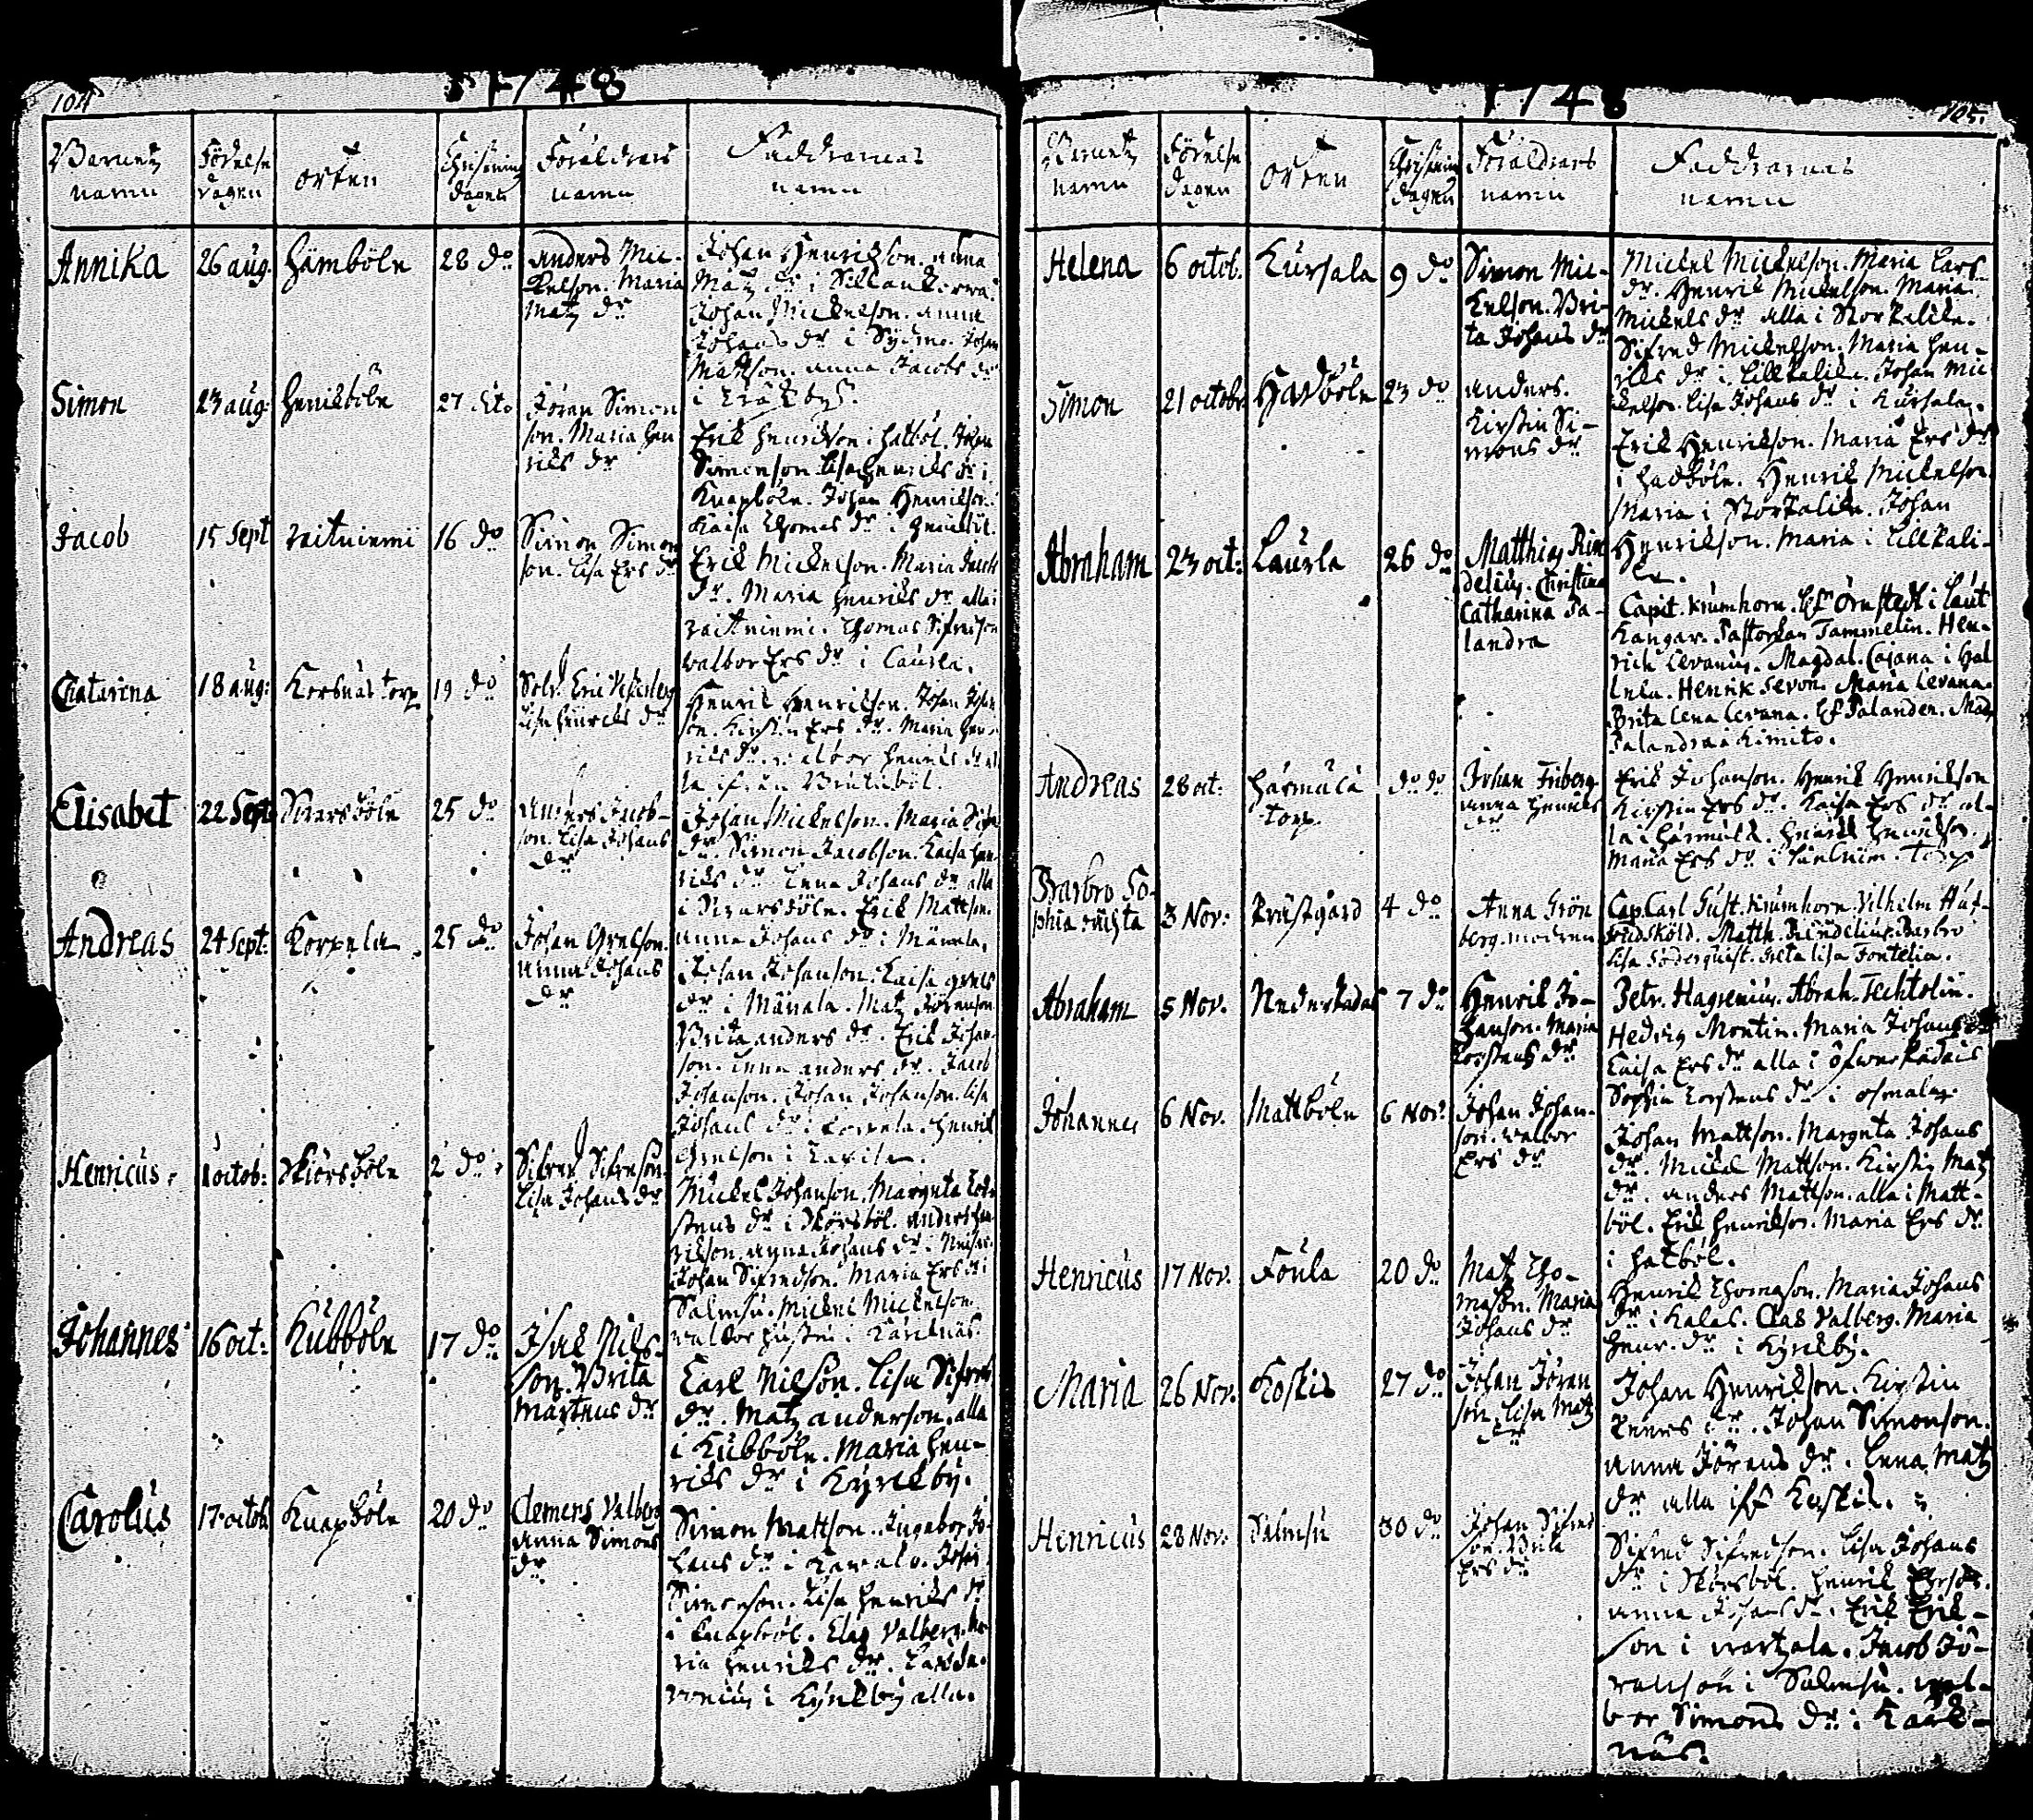 104
1748
Barnets namn
Födelse dagen
orten
Christnings dagen
Föräldrars namn
Faddrarnas namn
Annika
26 aug.
Hämböle
28 do
Anders Mic-
kelson. Maria
Matz dr
Johan Henrikson. Anna
Matz dr i
Johan Mickelson. Anna
Johans dr i Sydmo. Johan
Mattson. Anna Jacobs dr
i
Simon
23 aug:
Henrikböle
27
Jöran Simon
son. Maria Hen
riks dr
Erik Henrikson i Hatböl. Johan
Simonson Lisa Henriks dr i
Knapböle. Johan Henrikson.
Kaisa Thomas dr i
Jacob
15 Sept
16 do
Simon Simon
son. Lisa Ers dr
Erik Mickelson. Maria Jacobs
dr. Maria Henriks dr alla i
Thomas Sifredson
Walbor Ers dr i Laurla.
Chatarina
18 aug:
Korsnäs torp
19 do
Lisa Henriks dr
Henrik Henrikson. Johan Johan
son. Kirstin Ers dr. Maria Hen
riks dr. Walbor Henriks dr al
la
Elisabet
22 Sept
25 do
Anders Jacob-
son. Lisa Johans
dr
Johan Mickelson. Maria Sifre
dr. Simon Jacobson. Kaisa Hen
riks dr Lena Johans dr alla
i Erik Mattson.
Anna Johans dr i
Andreas
24 Sept:
Korpela
25 do
Johan Grelson.
Anna Johans
dr
Johan Johanson. Kaisa Grels
dr i Matz Jöranson
Brita Anders dr. Erik Johan-
son. Anders dr. Jacob
Johanson. Johan Johanson. Lisa
Johans dr i Henrik
Grelson i
Henricus.
1 octob:
Skiörsböle
2 do
Sifred Sifredson
Lisa Johans dr
Mickel Johanson. Margreta Tor-
stens dr i Skörsböl. Anders Hen
rikson. Anna Johans dr i
Johan Sifredson. Maria Ers dr i
Salmsu. Mickel Mickelson.
i Kärknäs.
Johannes
16 oct:
Kubböle
17 do
Isak Nils-
son. Brita
Martens dr
Carl Nilson. Lisa Sifreds
dr. Matz Anderson, alla
i Kubböle. Maria Hen-
riks dr i Kyrkby.
Carolus
17 octob.
Knapböle
20 do
Clemens Valberg
Anna Simons
dr.
Simon Mattson. Ingebor Jo-
hans dr i Johan
Simonson. Lisa Henriks dr
i Knapböl. Clas Valberg. Ma-
ria Henriks dr.
i Kyrkby alla.
1748
105.
Barnets namn
Födelse dagen
orten
Christnings dagen
Föräldrars namn
Faddrarnas namn
Helena
6 octob.
Kursala
9 do
Simon Mic-
kelson. Bri-
ta Johans dr
Mickel Mickelson. Maria Lars
dr. Henrik Mickelson. Maria
Mickels dr alla i Storkalila.
Sifred Mickelson. Maria Hen-
riks dr i Lillkalila. Johan Mic
kelson. Lisa Johans dr i Kursala.
Simon
21 octobr
Hadböle
23 do
Anders.
Kirstin Si-
mons dr
Erik Henrikson. Maria Ers dr
i Hadböle. Henrik Mickelson
Maria i Storkalila. Johan
Henrikson. Maria i Lillkali-
la.
Abraham
23 oct:
Laurla
26 do
Matthias Rin
delius. Christina
Catharina Pa-
landra
Capit. Krumhorn. Lf Örnstedt i Laut
kangar. Pastorskan Tammelin. Hen-
rich Levanus. Magdal. Cajana i Hal
lela. Henrik Sevon. Maria Levana.
Brita Lena Levana. Lf Palanden. Mad
Palandra i Kimito.
Andreas
28 oct:
Härmälä torp.
do do
Johan Friberg
Anna Henriks
dr
Erik Johanson. Henrik Henrikson
Kirstin Ers dr. Kaisa Ers dr al-
la i Härmälä. Henrik Henrikson.
Maria Ers dr i torp
Barbro So-
phia
3 Nov:
Prästgård
4 do
Anna Grön
berg. modren
Cap. Carl Gust. Krumhorn. Vilhelm
Matth. Rindelius. Barbro
Lisa Söderquist. Greta Lisa Fontelia.
Abraham
5 Nov.
Nederkådas
7 do
Henrik Jo-
hanson. Maria
Torstens dr
Petr. Hagrenius. Abrah. Techtolin.
Hedvig Montin. Maria Johans dr
Caisa Ers dr alla i Öfwerkådais
Sophia Torstens dr i
Johannes
6 Nov.
Mattböle
6 Nov:
Johan Johan-
son. Walbor
Ers dr
Johan Mattson. Margreta Johans
dr. Mickel Mattson. Kirstin Matz
dr. Anders Mattson. alla i Matt-
böl. Erik Henrikson. Maria Ers dr
i Hatböl.
Henricus
17 Nov.
Föula
20 do
Matz Tho-
mason. Maria
Johans dr
Henrik Thomason. Maria Johans
dr i Kalas. Clas Valberg. Maria
Henr. dr i Kyrkby.
Maria
26 Nov.
Koskis
27 do
Johan Jöran
son. Lisa Matz
dr
Johan Henrikson. Kirstin
dr. Johan Simonson.
Anna Jörans dr. Lena Matz
dr alla Koskis.
Henricus
28 Nov.
Salmsu
30 do
Johan Sifred
son. Brita
Ers dr
Sifred Sifredson. Lisa Johans
dr i Skörsböl. Henrik
Anna Johans dr. Erik Erik-
son i Wartsala. Jacob Jö-
ranson i Salmsu. Wal-
bor Simons dr i Kärk-
näs.